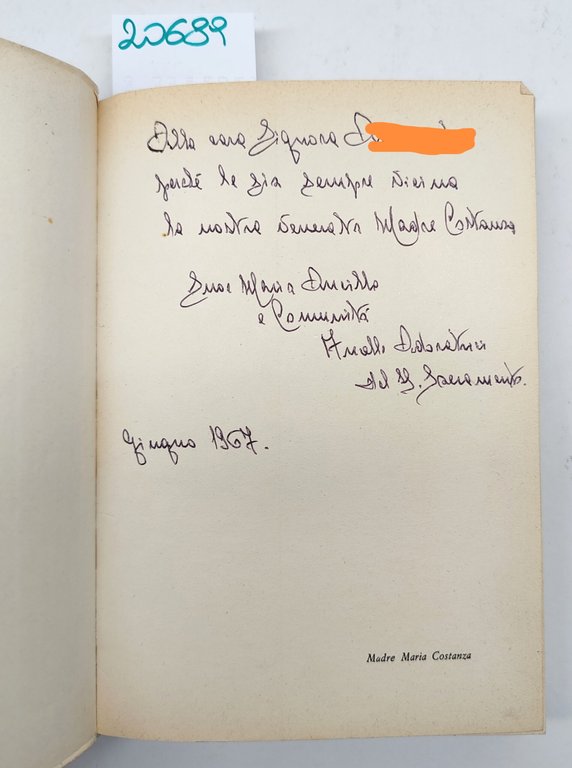 20689
Alla cara Signora
perché le sia sempre vicina
la nostra Venerata Madre Costanza
Suor Maria Ancilla
e Comunità
Ancelle Adoratrici
del SS. Sacramento.
giugno 1967.
Madre Maria Costanza